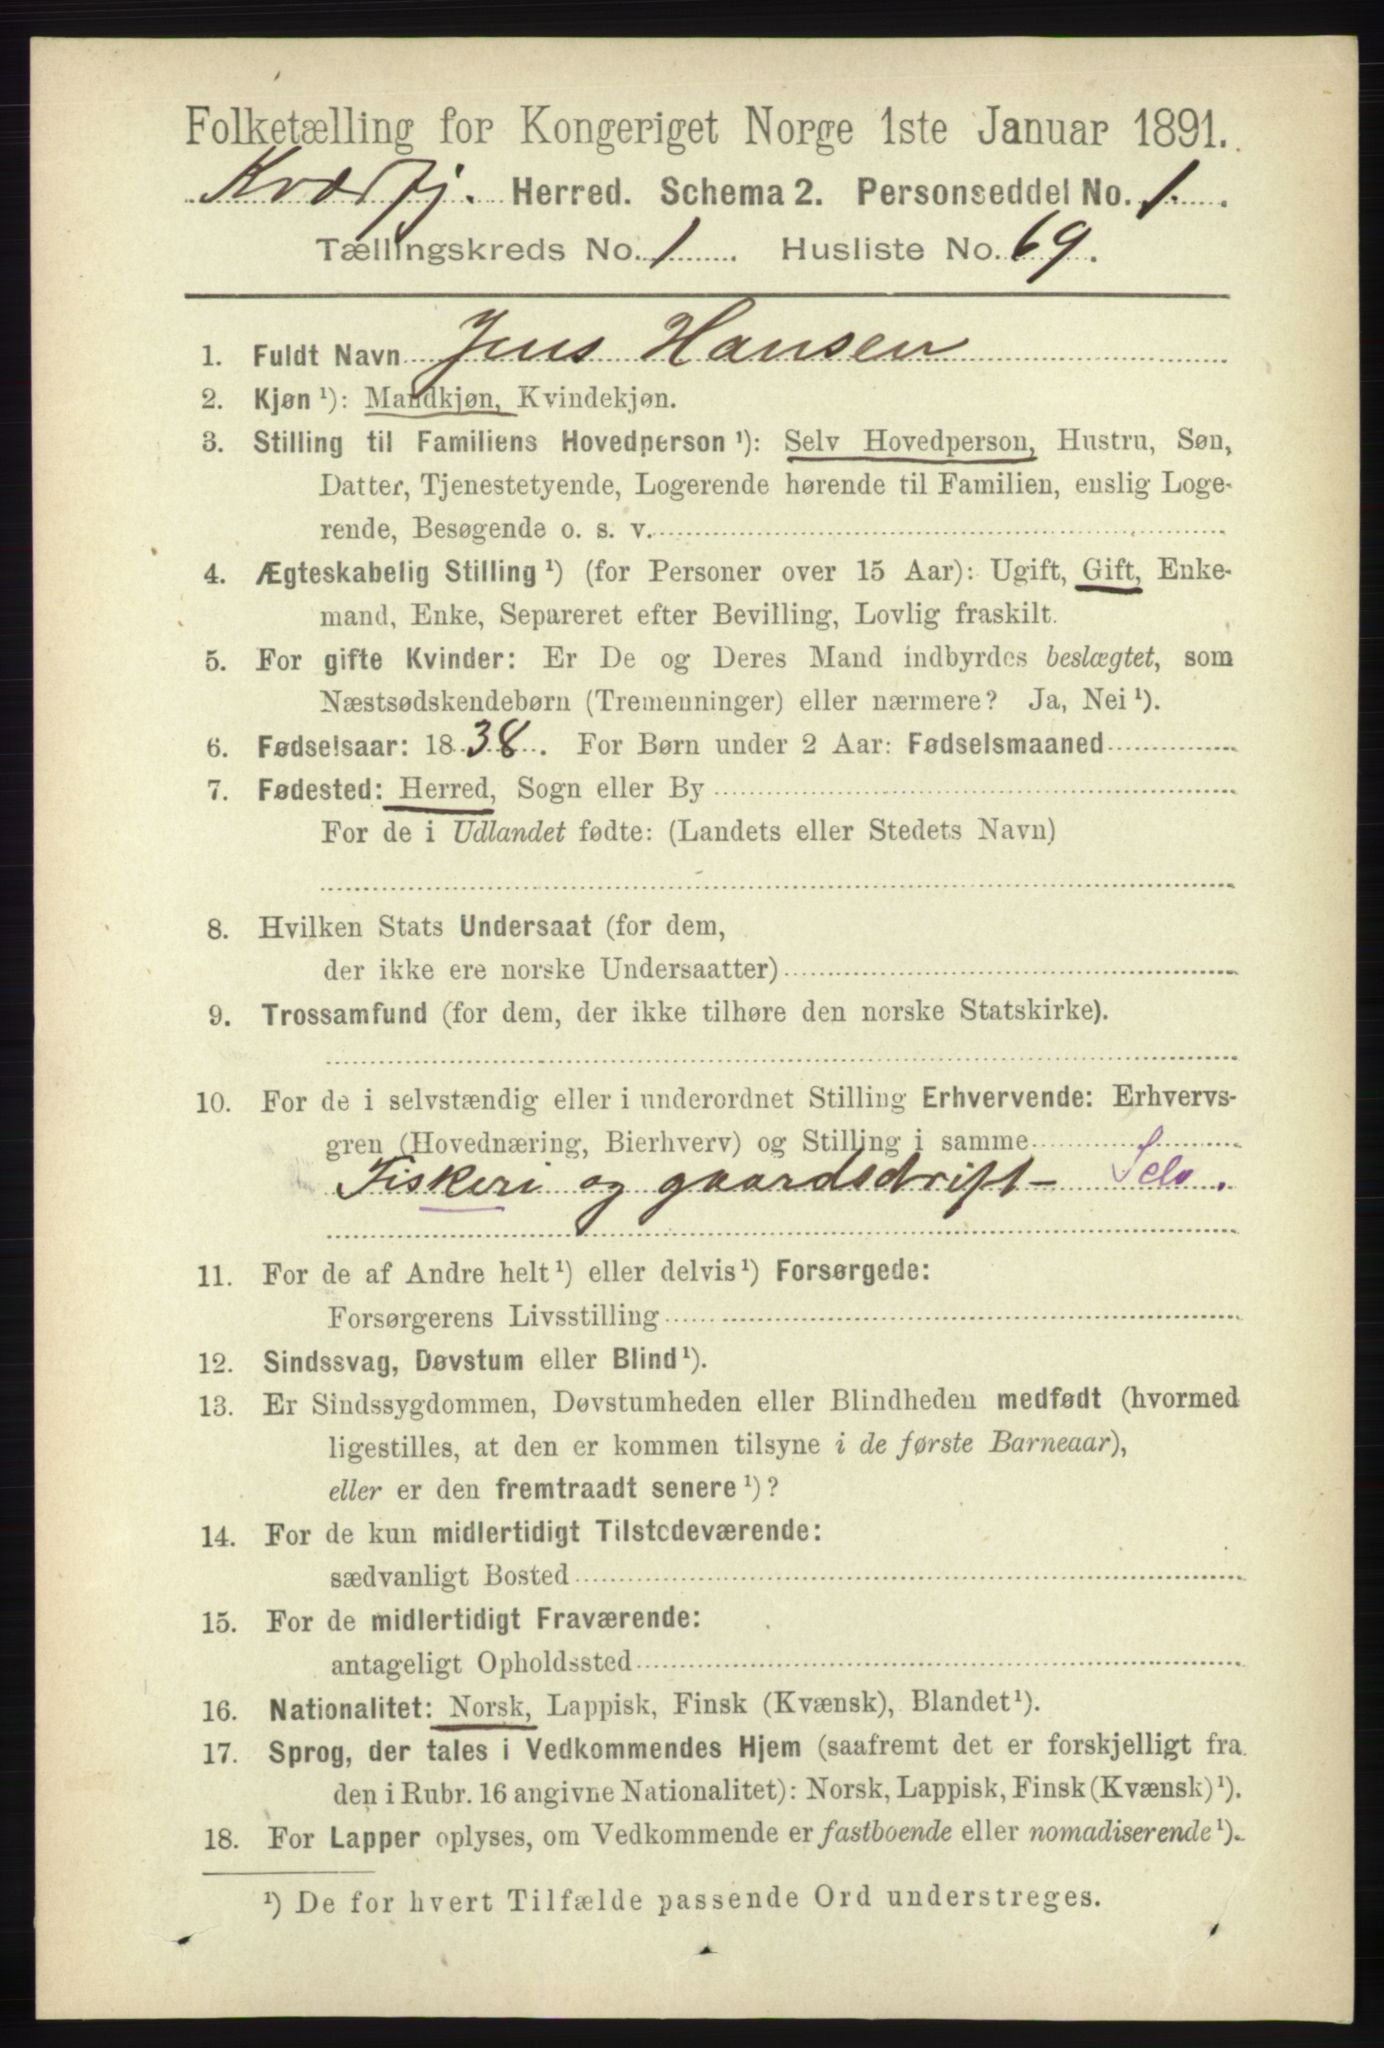 Folketælling for Kongeriget Norge 1ste Januar 1891.
Kværfj. Herred. Schema 2. Personseddel No. 1.
Tællingskreds No. 1. Husliste No. 69.
1. Fuldt Navn Jens Hansen
2. Kjøn ¹): Mandkjøn, Kvindekjøn.
3. Stilling til Familiens Hovedperson ¹): Selv Hovedperson, Hustru, Søn,
Datter, Tjenestetyende, Logerende hørende til Familien, enslig Loge-
rende, Besøgende o. s. v.
4. Ægteskabelig Stilling ¹) (for Personer over 15 Aar): Ugift, Gift, Enke-
mand, Enke, Separeret efter Bevilling, Lovlig fraskilt.
5. For gifte Kvinder: Er De og Deres Mand indbyrdes beslægtet, som
Næstsødskendebørn (Tremenninger) eller nærmere? Ja, Nei ¹).
6. Fødselsaar: 1838. For Børn under 2 Aar: Fødselsmaaned
7. Fødested: Herred, Sogn eller By
For de i Udlandet fødte: (Landets eller Stedets Navn)
8. Hvilken Stats Undersaat (for dem,
der ikke ere norske Undersaatter)
9. Trossamfund (for dem, der ikke tilhøre den norske Statskirke).
10. For de i selvstændig eller i underordnet Stilling Erhvervende: Erhvervs-
gren (Hovednæring, Bierhverv) og Stilling i samme
Fiskeri og gaardsdrift - Selv.
11. For de af Andre helt ¹) eller delvis ¹) Forsørgede:
Forsørgerens Livsstilling
12. Sindssvag, Døvstum eller Blind ¹).
13. Er Sindssygdommen, Døvstumheden eller Blindheden medfødt (hvormed
ligestilles, at den er kommen tilsyne i de første Barneaar),
eller er den fremtraadt senere ¹)?
14. For de kun midlertidigt Tilstedeværende:
sædvanligt Bosted
15. For de midlertidigt Fraværende:
antageligt Opholdssted
16. Nationalitet: Norsk, Lappisk, Finsk (Kvænsk), Blandet ¹).
17. Sprog, der tales i Vedkommendes Hjem (saafremt det er forskjelligt fra
den i Rubr. 16 angivne Nationalitet): Norsk, Lappisk, Finsk (Kvænsk) ¹).
18. For Lapper oplyses, om Vedkommende er fastboende eller nomadiserende ¹).
¹) De for hvert Tilfælde passende Ord understreges.